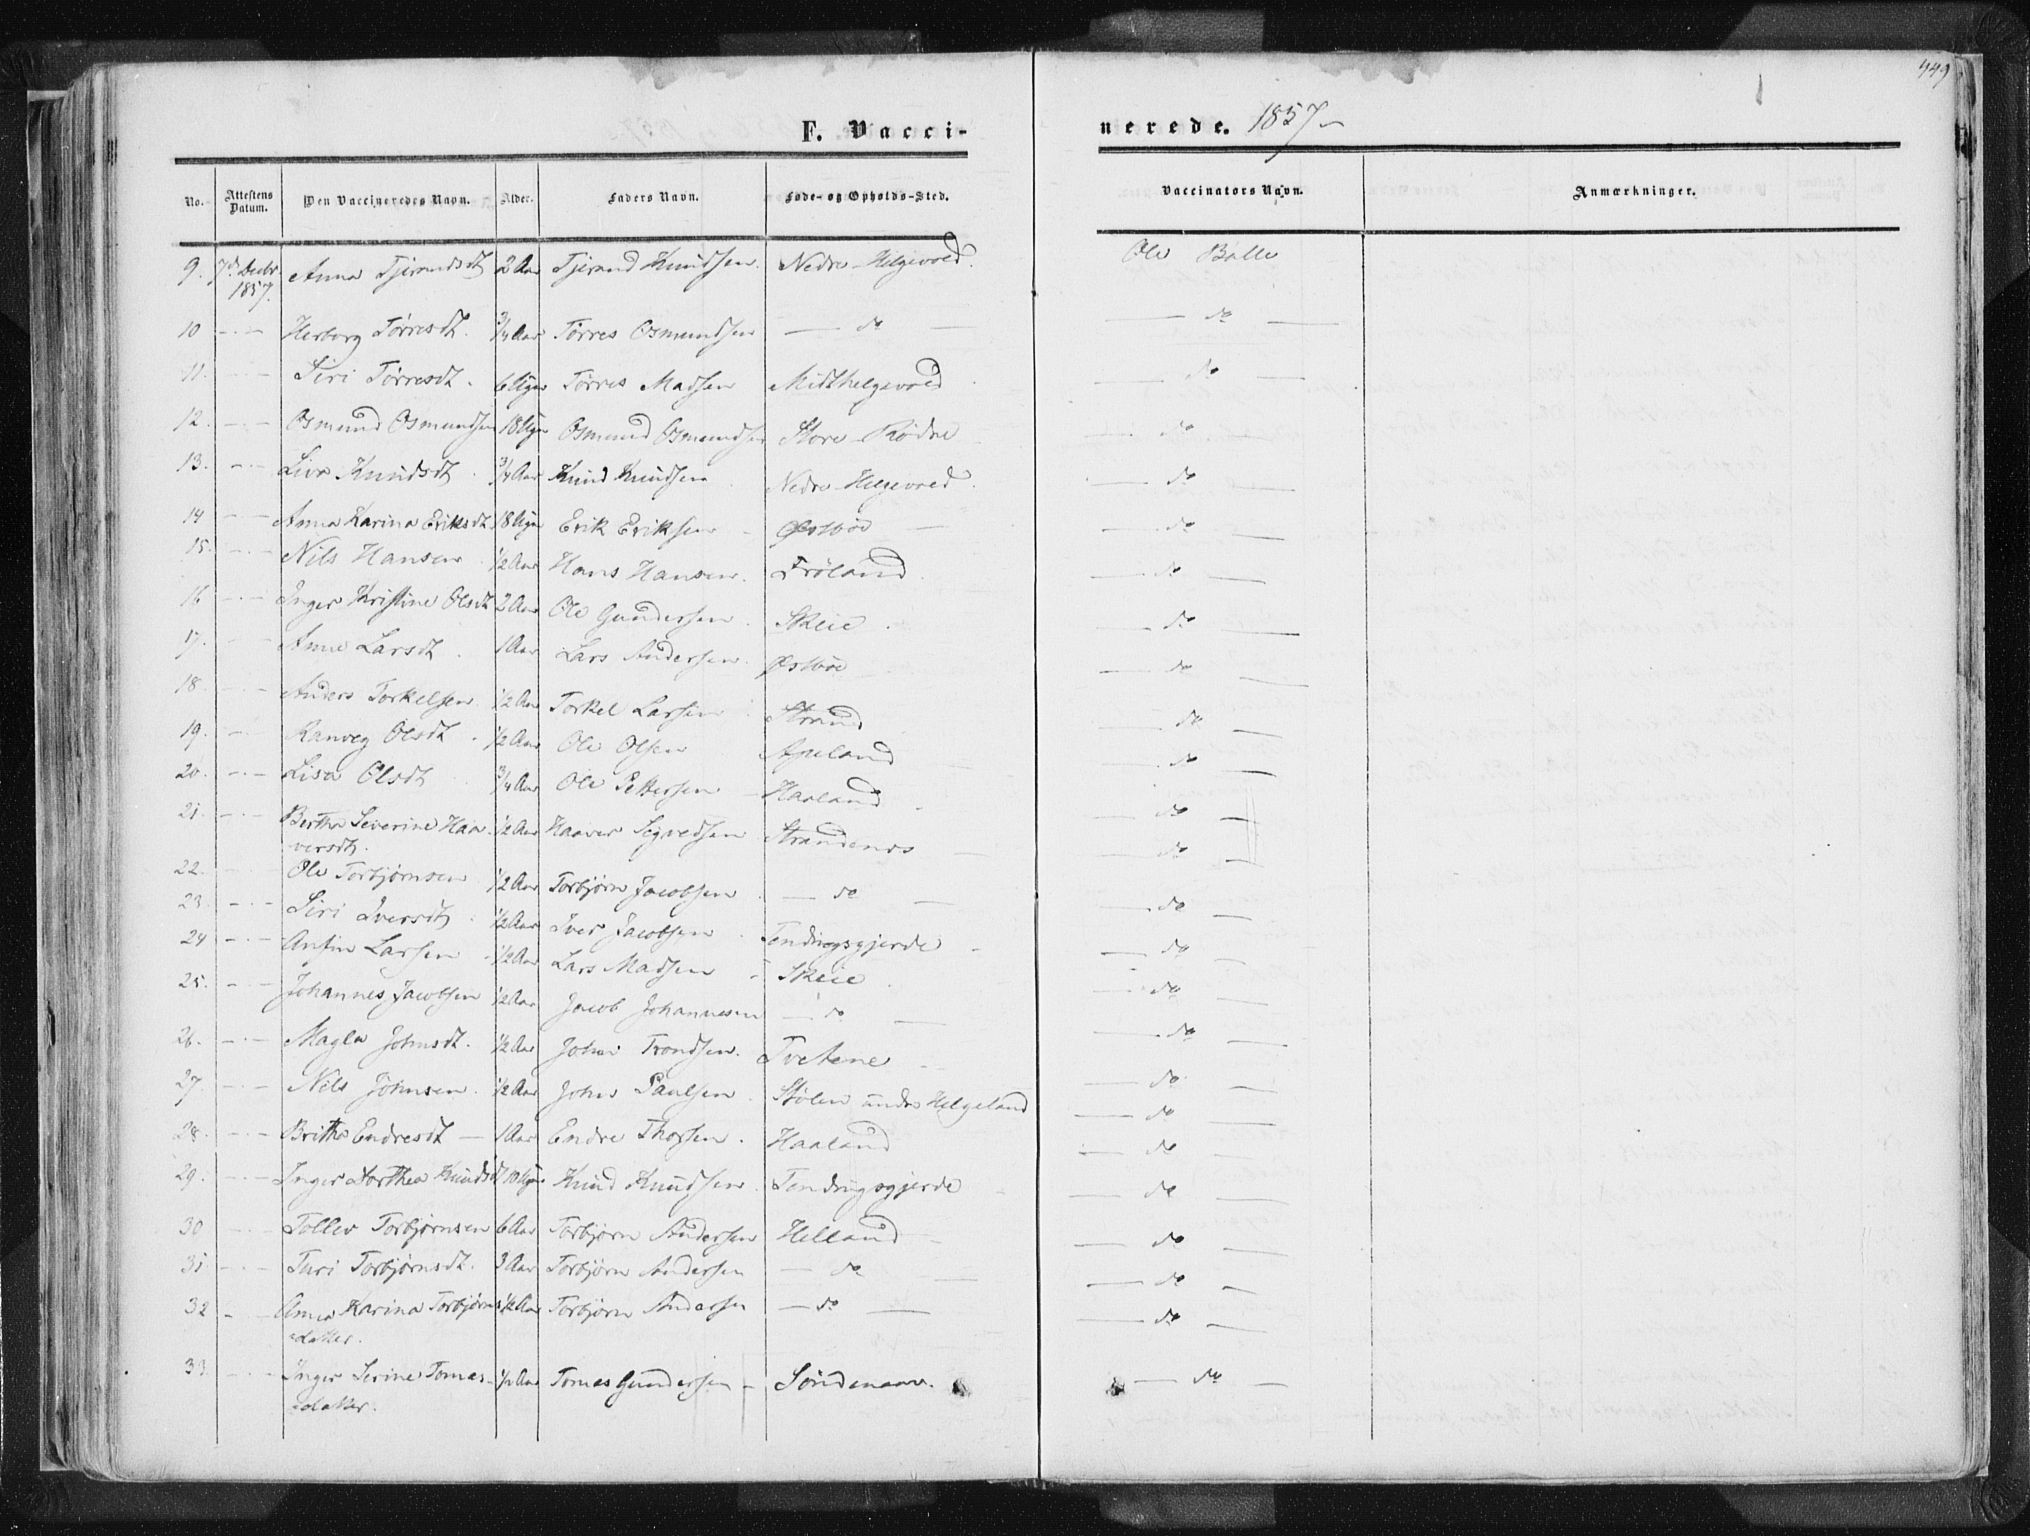 449
F. Vacci-
nerede. 1857
No. Attestens Datum. Den Vaccineredes Navn. Alder. Faders Navn. Føde- og Opholds-Sted. Vaccinators Navn. Anmærkninger.
9. 7d Decbr 1857. Anna Tjerandsdt 2 Aar Tjerand Knudsen. Nedre Helgevold. Ole Bølle
10 Herborg Tørresdt. 3/4 Aar Tørres Osmundsen do do
11. Siri Tørresdt. 6 Uger Tørres Madsen Midthelgevold do
12. Osmund Osmundsen 18 Uger Osmund Osmundsen Store Rødne do
13. Liva Knudsdt 3/4 Aar Knud Knudsen Nedre Helgevold. do
14 Anna Karina Eriksdt 18 Uger Erik Eriksen Østbøe do
15. Nils Hansen 1/2 Aar Hans Hansen. Frøland. do
16 Inger Kristine Olsdt 2 Aar Ole Gundersen Skeie. do
17. Anne Larsdt. 1 Aar Lars Andersen. Østbøe do
18. Anders Torkelsen 1/2 Aar Torkel Larsen Strand do
19. Ranveg Olsdt. 1/2 Aar Ole Olsen Apeland do
20. Lisa Olsdt 3/4 Aar Ole Pettersen Haaland do
21. Bertha Severine Haa- 1/2 Aar Haaver Segvedsen Strandenes do
versdt.
22. Ole Torbjørnsen 1/2 Aar Torbjørn Jacobsen do do
23. Siri Iversdt 1/2 Aar Iver Jacobsen. Tendingsgjerde do
24 Anfin Larsen 1/2 Aar Lars Madsen Skeie do
25. Johannes Jacobsen 1/2 Aar Jacob Johannesen do do
26. Magla Johnsdt. 1/2 Aar John Trondsen. Tvetene do
27. Nils Johnsen. 1/2 Aar John Paulsen Stølen under Helgeland do
28. Britha Endresdt 1 Aar Endre Thorsen. Haaland do
29. Inger Dorthea Knudsdt 10 Uger Knud Knudsen. Tendingsgjerde do
30 Tollev Torbjørnsen 6 Aar Torbjørn Andersen Helland do
31 Turi Torbjørnsdt. 3 Aar Torbjørn Andersen do do
32 Anna Karina Torbjørns 1/2 Aar Torbjørn Andersen do do
datter.
33 Inger Serine Tomas- 1/2 Aar Tomas Gundersen Søndenaae. do
datter.